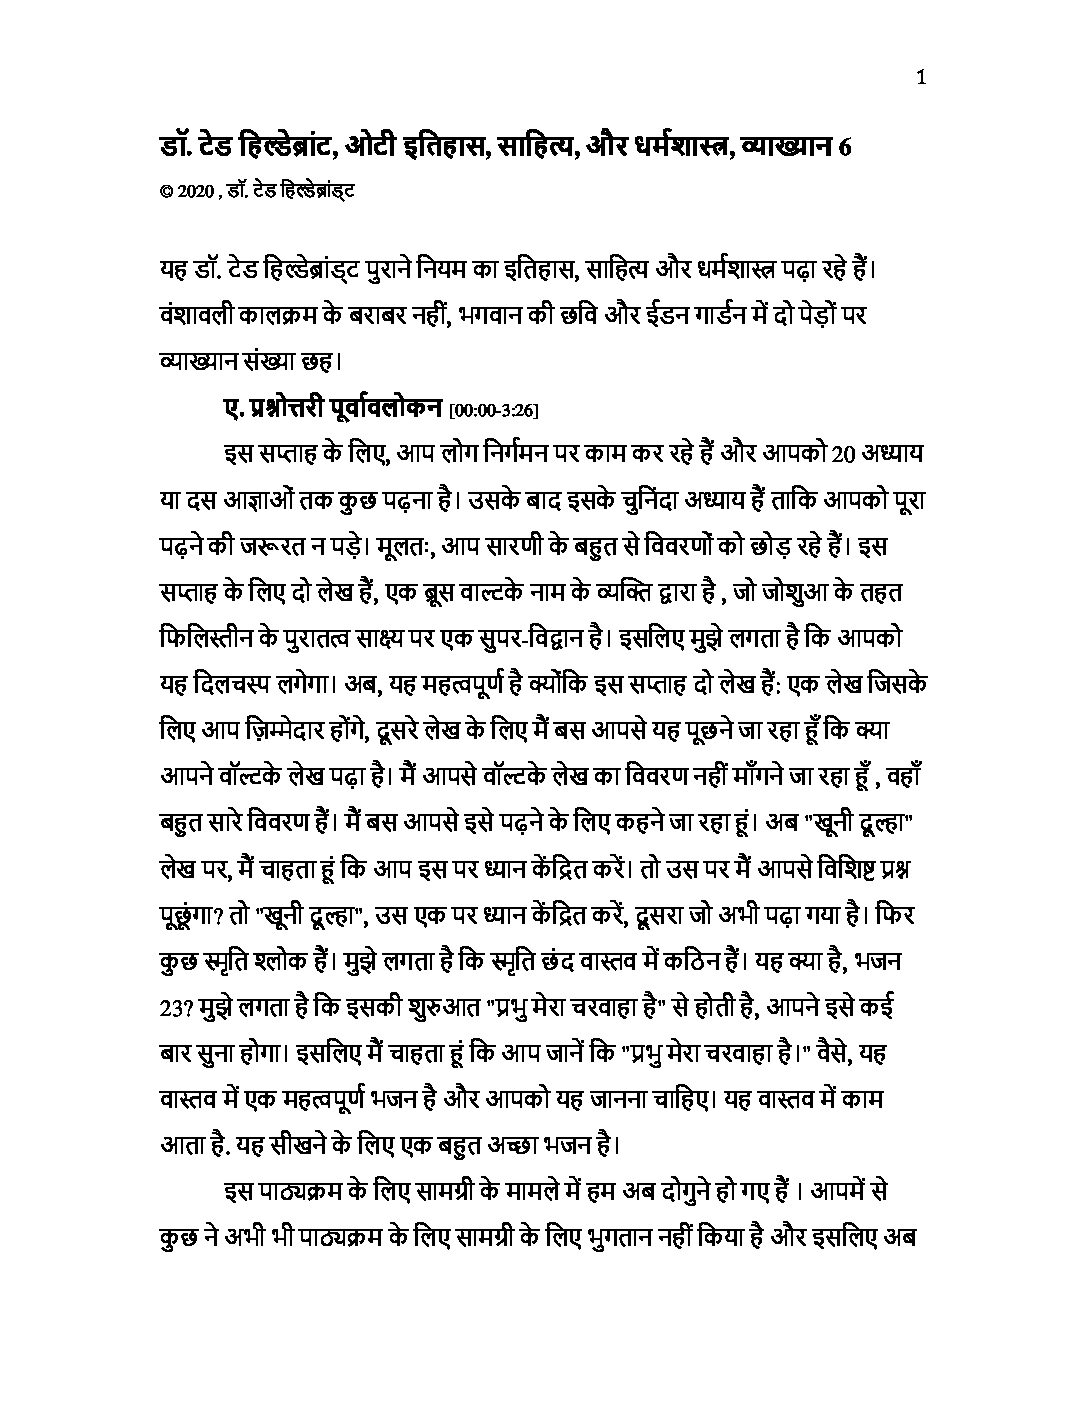 1
डॉ. टेड हिल्डेब्रांट, ओटी इतिहास, साहित्य, और धर्मशास्त्र, व्याख्यान 6
© 2020 , डॉ. टेड हिल्डेब्रांड्ट
यह डॉ. टेड हिल्डेब्रांड्ट पुराने नियम का इतिहास, साहित्य और धर्मशास्त्र पढ़ा रहे हैं।
वंशावली कालक्रम के बराबर नहीं, भगवान की छवि और ईडन गार्डन में दो पेड़ों पर
व्याख्यान संख्या छह।
ए. प्रश्नोत्तरी पूर्वावलोकन [00:00-3:26]
इस सप्ताह के लिए, आप लोग निर्गमन पर काम कर रहे हैं और आपको 20 अध्याय
या दस आज्ञाओं तक कुछ पढ़ना है। उसके बाद इसके चुनिंदा अध्याय हैं ताकि आपको पूरा
पढ़ने की जरूरत न पड़े। मूलतः, आप सारणी के बहुत से विवरणों को छोड़ रहे हैं। इस
सप्ताह के लिए दो लेख हैं, एक ब्रूस वाल्टके नाम के व्यक्ति द्वारा है , जो जोशुआ के तहत
फिलिस्तीन के पुरातत्व साक्ष्य पर एक सुपर-विद्वान है। इसलिए मुझे लगता है कि आपको
यह दिलचस्प लगेगा। अब, यह महत्वपूर्ण है क्योंकि इस सप्ताह दो लेख हैं: एक लेख जिसके
लिए आप ज़िम्मेदार होंगे, दूसरे लेख के लिए मैं बस आपसे यह पूछने जा रहा हूँ कि क्या
आपने वॉल्टके लेख पढ़ा है। मैं आपसे वॉल्टके लेख का विवरण नहीं माँगने जा रहा हूँ , वहाँ
बहुत सारे विवरण हैं। मैं बस आपसे इसे पढ़ने के लिए कहने जा रहा हूं। अब "खूनी दूल्हा"
लेख पर, मैं चाहता हूं कि आप इस पर ध्यान केंद्रित करें। तो उस पर मैं आपसे विशिष्ट प्रश्न
पूछूंगा? तो "खूनी दूल्हा", उस एक पर ध्यान केंद्रित करें, दूसरा जो अभी पढ़ा गया है। फिर
कुछ स्मृति श्लोक हैं। मुझे लगता है कि स्मृति छंद वास्तव में कठिन हैं। यह क्या है, भजन
23? मुझे लगता है कि इसकी शुरुआत "प्रभु मेरा चरवाहा है" से होती है, आपने इसे कई
बार सुना होगा। इसलिए मैं चाहता हूं कि आप जानें कि "प्रभु मेरा चरवाहा है।" वैसे, यह
वास्तव में एक महत्वपूर्ण भजन है और आपको यह जानना चाहिए। यह वास्तव में काम
आता है. यह सीखने के लिए एक बहुत अच्छा भजन है।
इस पाठ्यक्रम के लिए सामग्री के मामले में हम अब दोगुने हो गए हैं । आपमें से
कुछ ने अभी भी पाठ्यक्रम के लिए सामग्री के लिए भुगतान नहीं किया है और इसलिए अब